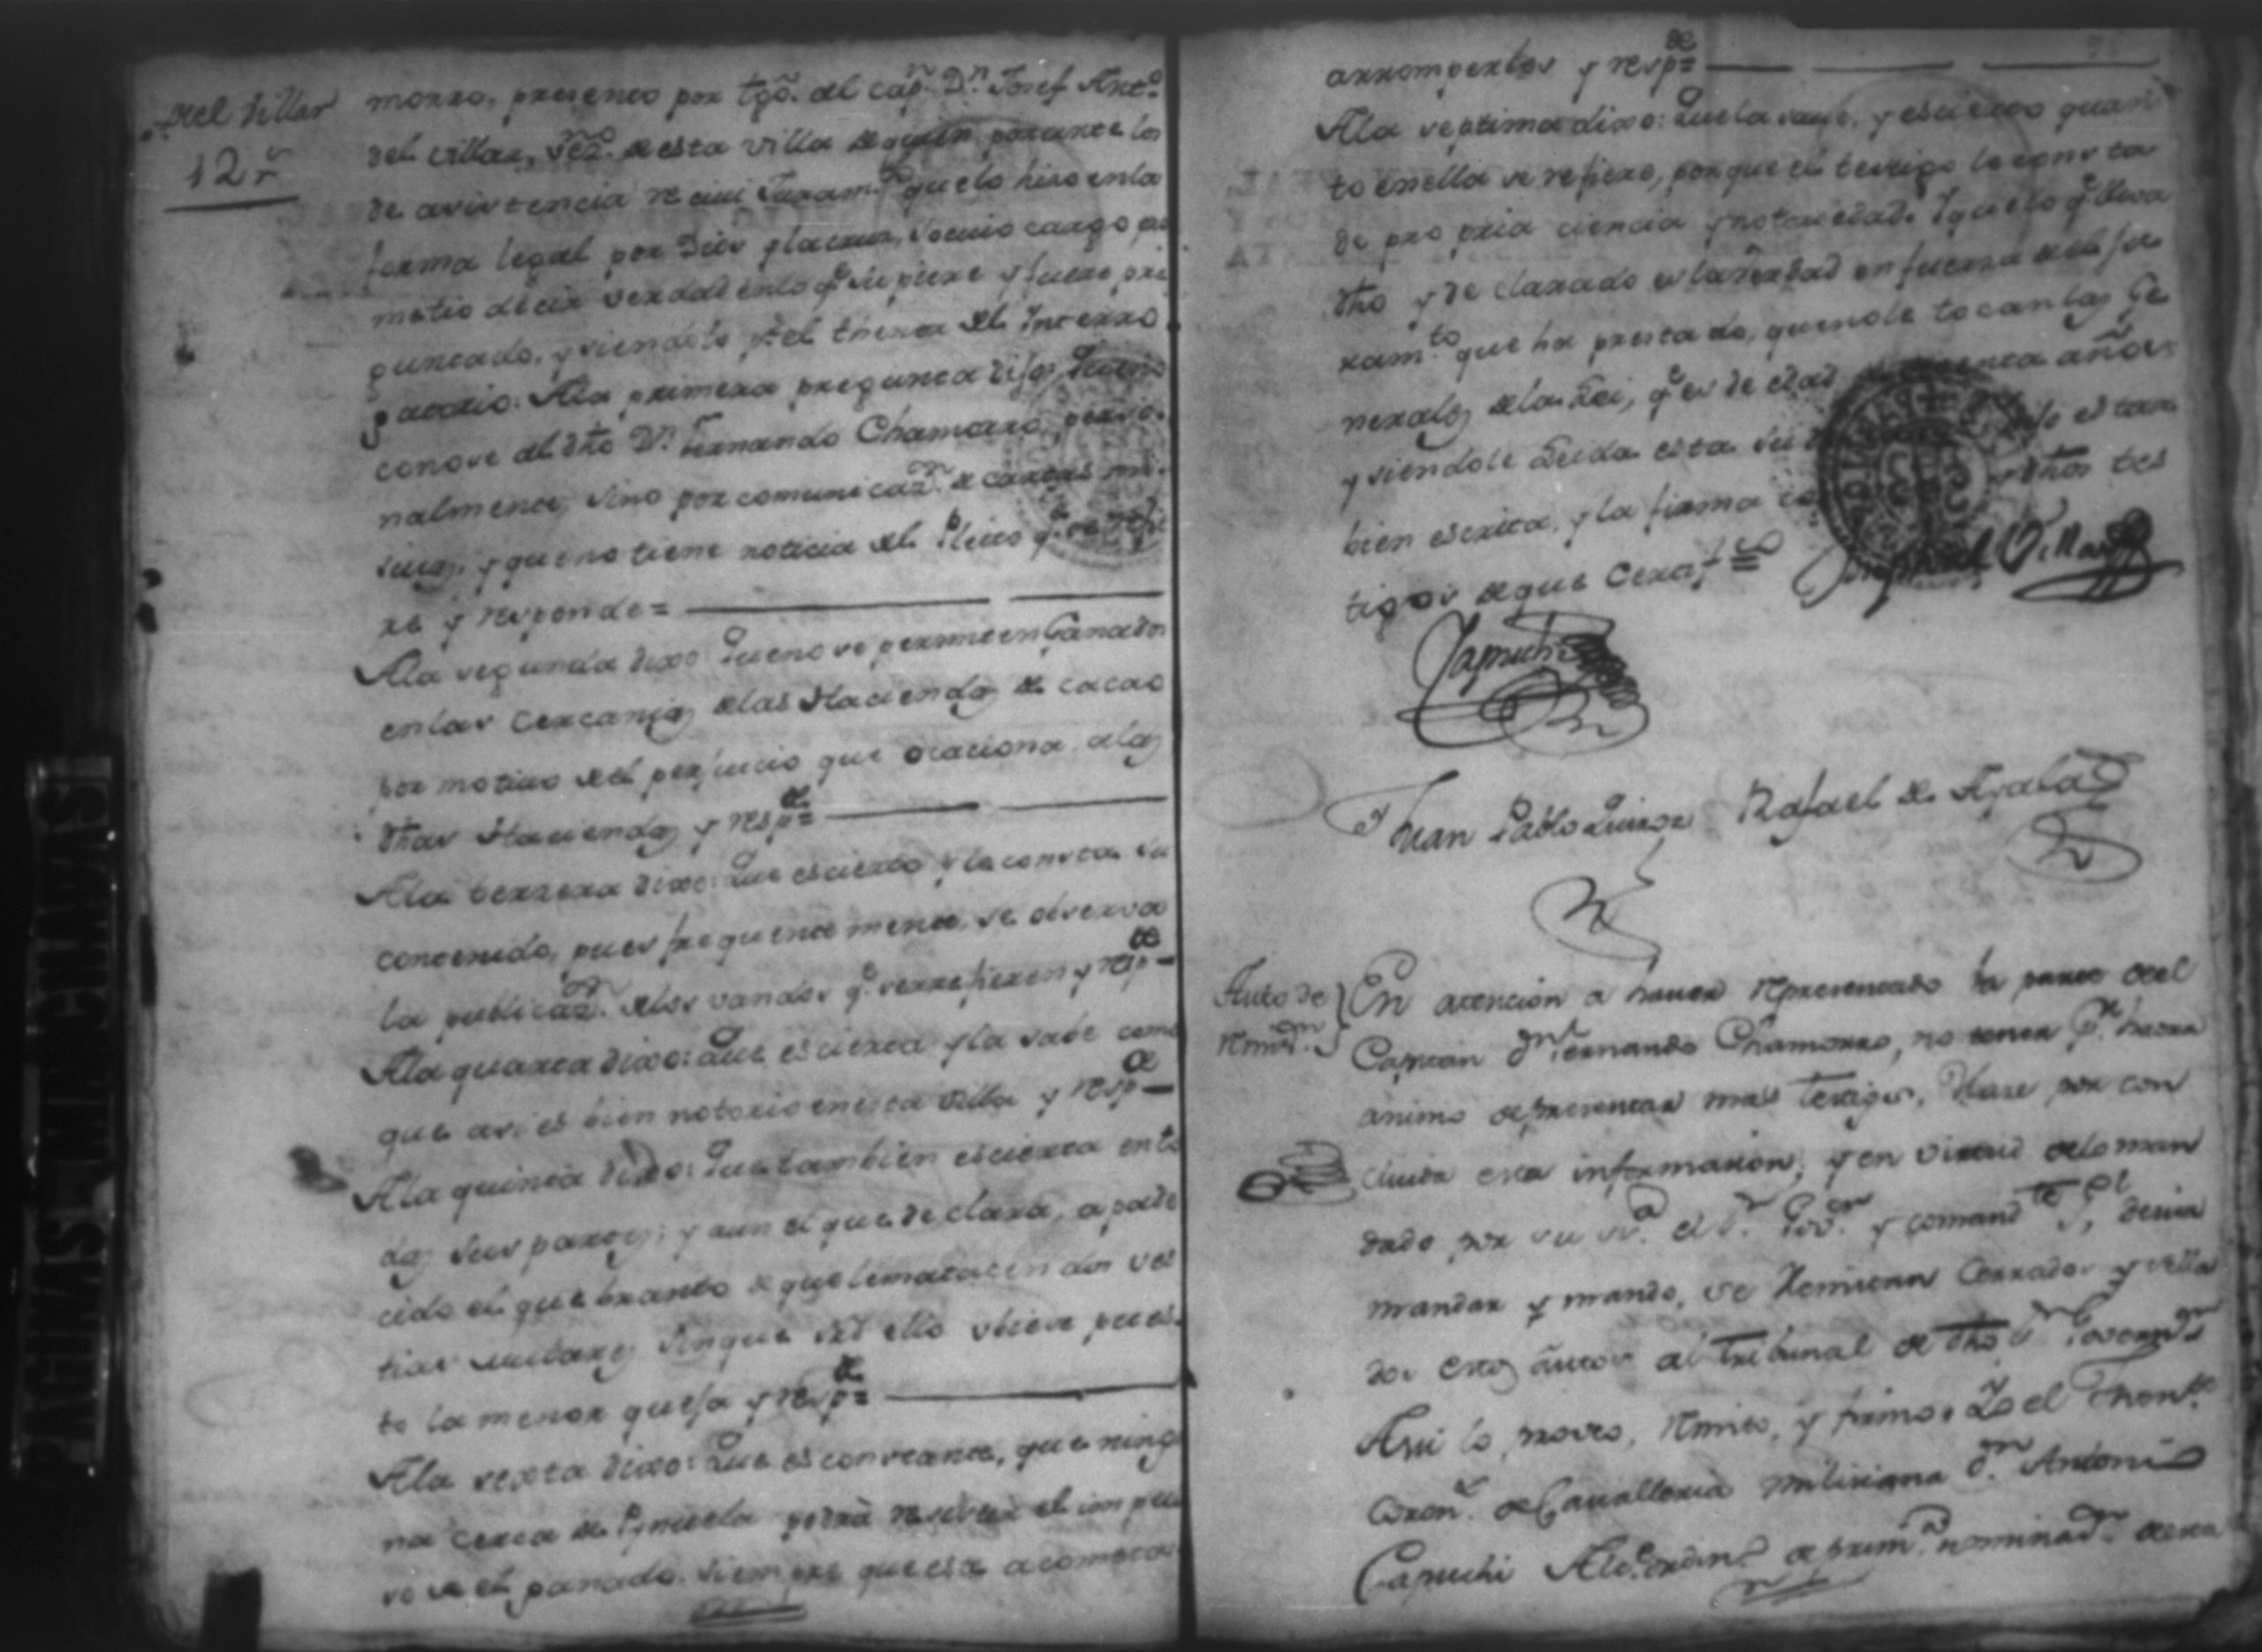 del Villar
12r
morro, presento por tgō. al cap.n D.n Josef Ant.o
del Villar, vez.no de esta Villa de quien por ante los
de asistencia recivi Juram.to que lo hiso en la
forma legal por Dios y la cruz, socuio cargo pro
metio decir verdad en lo q.e supiere y fuere pre
guntado, y siendolo p.r el thenor del Interro
gatorio: A la primera pregunta dijo: Que no
conose al dho D.n Fernando Chamorro perso
nalmente, sino por comunicaz.on de cartas mi
sivas, y que no tiene noticia del Pleito q.e se refie
re y responde=
A la segunda dixo: Que no se permiten Ganados
en las cercanias de las Haciendas de cacao
por motivo del perjuicio que ocaciona a las
dhas Haciendas y resp.de=
A la terzera dixo: Que es cierto y le consta su
contenido, pues frequentemente se observa
la publicaz.on de los vandos q.e serrefieren y resp.de=
A la quarta dixo: Que es cierta y la save como
que asi es bien notorio en esta Villa y resp.de=
A la quinta dixo: Que tambien es cierta en to
das sus partes; y aun el que declara, a pade
cido el quebranto de que le matasen dos ves
tias mulares sin que de ello ubiese pues
to la menor queja y resp.de=
A la sexta dixo: Que es constante, que ningu
na cerca de Piñuela podrá resistir el impul
so de el ganado siempre que esa acometa
arromperlas y resp.de=
A la septima dixo: Que la save, y es cierto quan
to en ella se refiere, porque el testigo le consta
de pro pria ciencia y notoriedad. Y que lo q.e lleva
dho y declarado es la verdad en fuerza del ju
ram.to que ha prestado, que no le tocan las Ge
nerales de la Lei, q.e es de edad de enta años
y siendole Leida esta su dijo estar
bien escrita, y la firma co dhos tes
tigos de que Certf.co=
Joseph del Villar
Capuchi
Juan Pablo Quiros Rafael de Ayala
Auto de
remis.on
En atencion a haver representado la parte del
Capitan d.n Fernando Chamorro, no tener p.r haora
animo de presentar mas testigos, Dase por con
cluida esta informacion; y en virtud de lo man
dado por su s.ria el S.r Gov.or y comand.te G.l, devia
mandar y mando, se Remitan Cerrados y sella
dos estos autos al Tribunal de dho S.r Governad.or
Asi lo proveo, remito, y firmo. Yo el Then.te
Coron.l de Cavalleria miliciana d.n Antonio
Capuchi Alc.e ordin.o de prim.a nominaz.on de esta